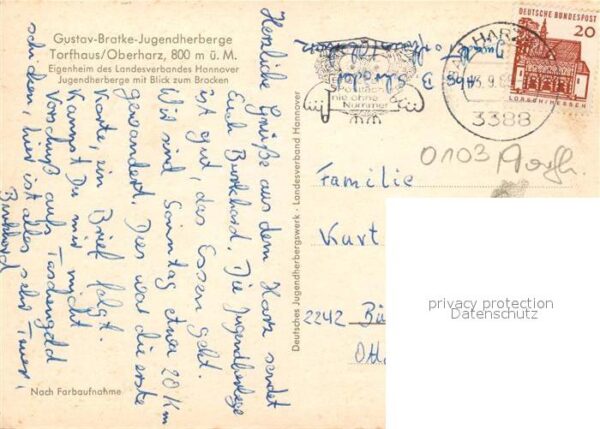 Gustav-Bratke-Jugendherberge
Torfhaus/Oberharz, 800 m ü. M.
Eigenheim des Landesverbandes Hannover
Jugendherberge mit Blick zum Brocken
Herzliche Grüße aus dem Harz sendet
Euch Burkhard. Die Jugendherberge
ist gut, das Essen geht.
Wir sind Sonntag etwa 20 Km
gewandert. Dies war die erste
Karte, ein Brief folgt.
Kannst Du mir nicht
Vorschuß aufs Taschengeld
schicken, hier ist alles sehr Teuer!
Burkhard
Nach Farbaufnahme
Deutsches Jugendherbergswerk · Landesverband Hannover
Abs. B. Schröder
nie ohne
Nummer
HARZ
3388
DEUTSCHE BUNDESPOST
20
LORSCH/HESSEN
0103
Familie
Kurt
2242 Bü
Otto
privacy protection
Datenschutz